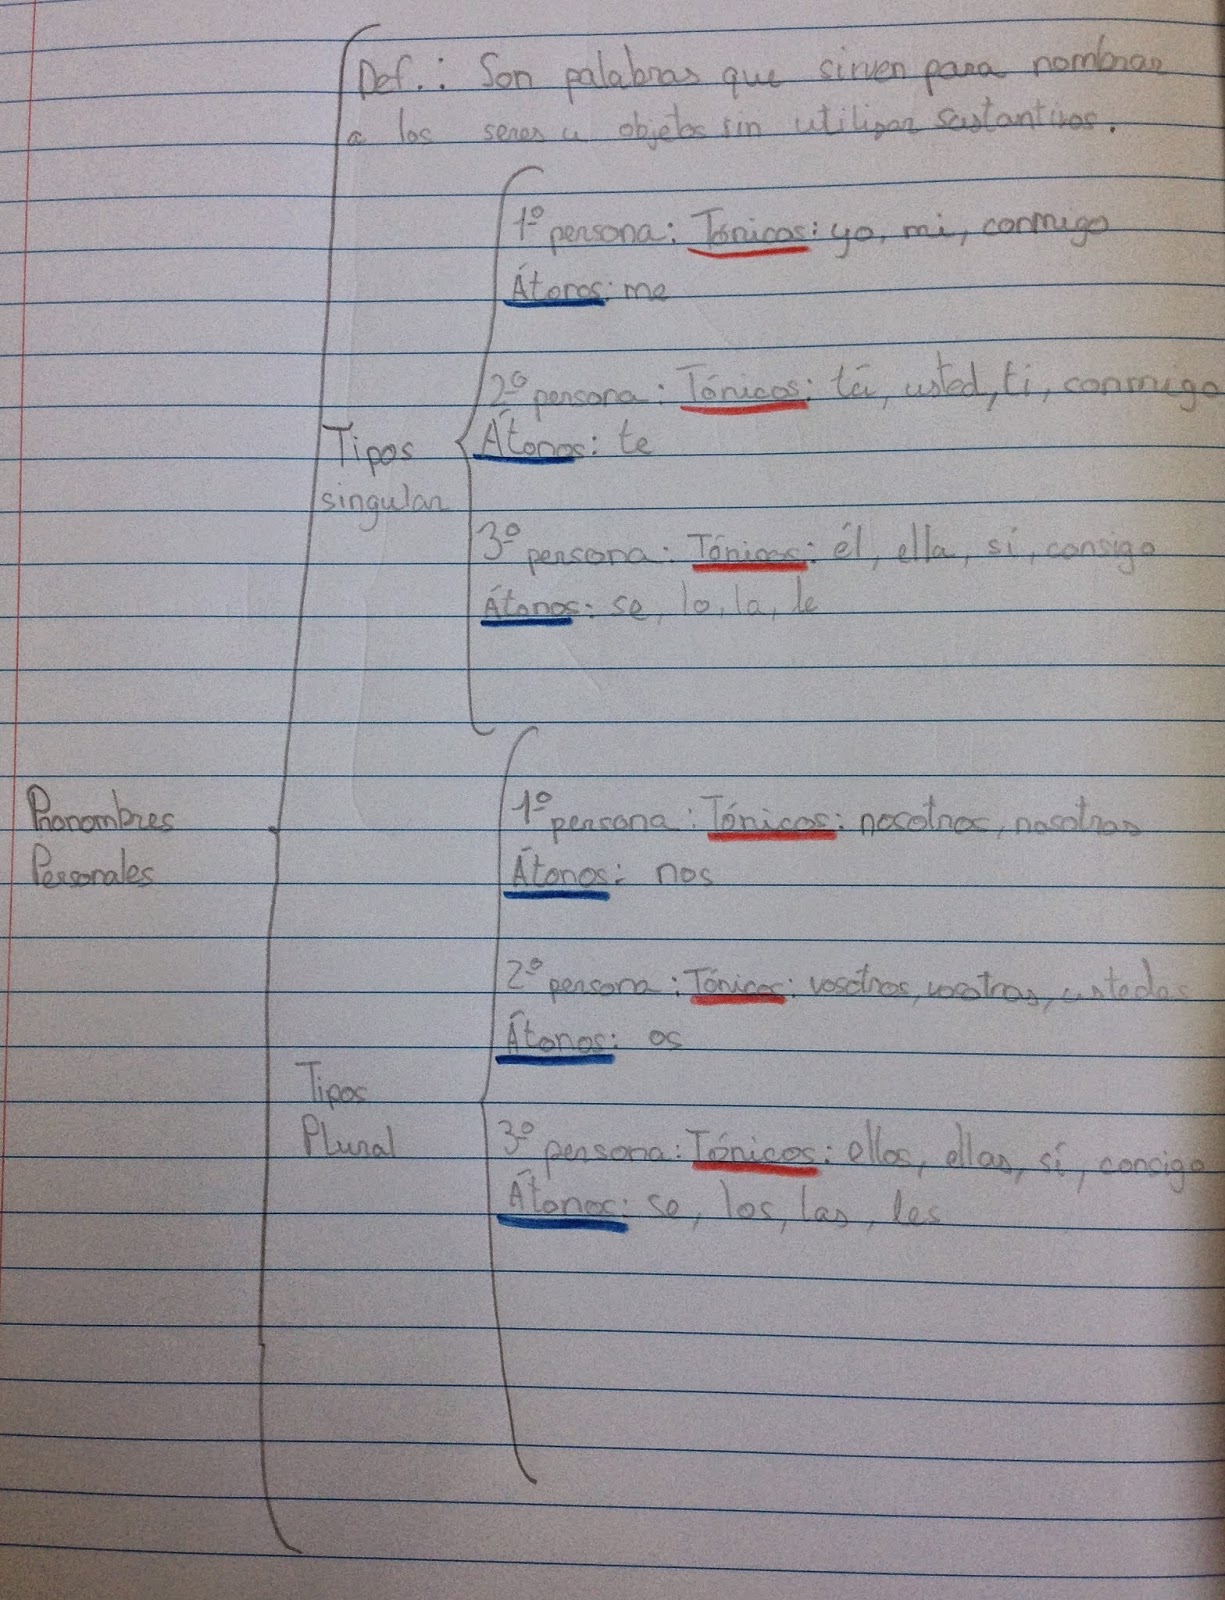 Def.: Son palabras que sirven para nombrar
a los seres u objetos sin utilizar sustantivos.
1º persona: Tónicos: yo, mi, conmigo
Átonos: me
2º persona: Tónicos: tú, usted, ti, conmigo
Átonos: te
Tipos
singular
3º persona: Tónicos: él, ella, sí, consigo
Átonos: se, lo, la, le
Pronombres
Personales
1º persona: Tónicos: nosotros, nosotras
Átonos: nos
2º persona: Tónicos: vosotros, vosotras, ustedes
Átonos: os
Tipos
Plural
3º persona: Tónicos: ellos, ellas, sí, consigo
Átonos: se, los, las, les